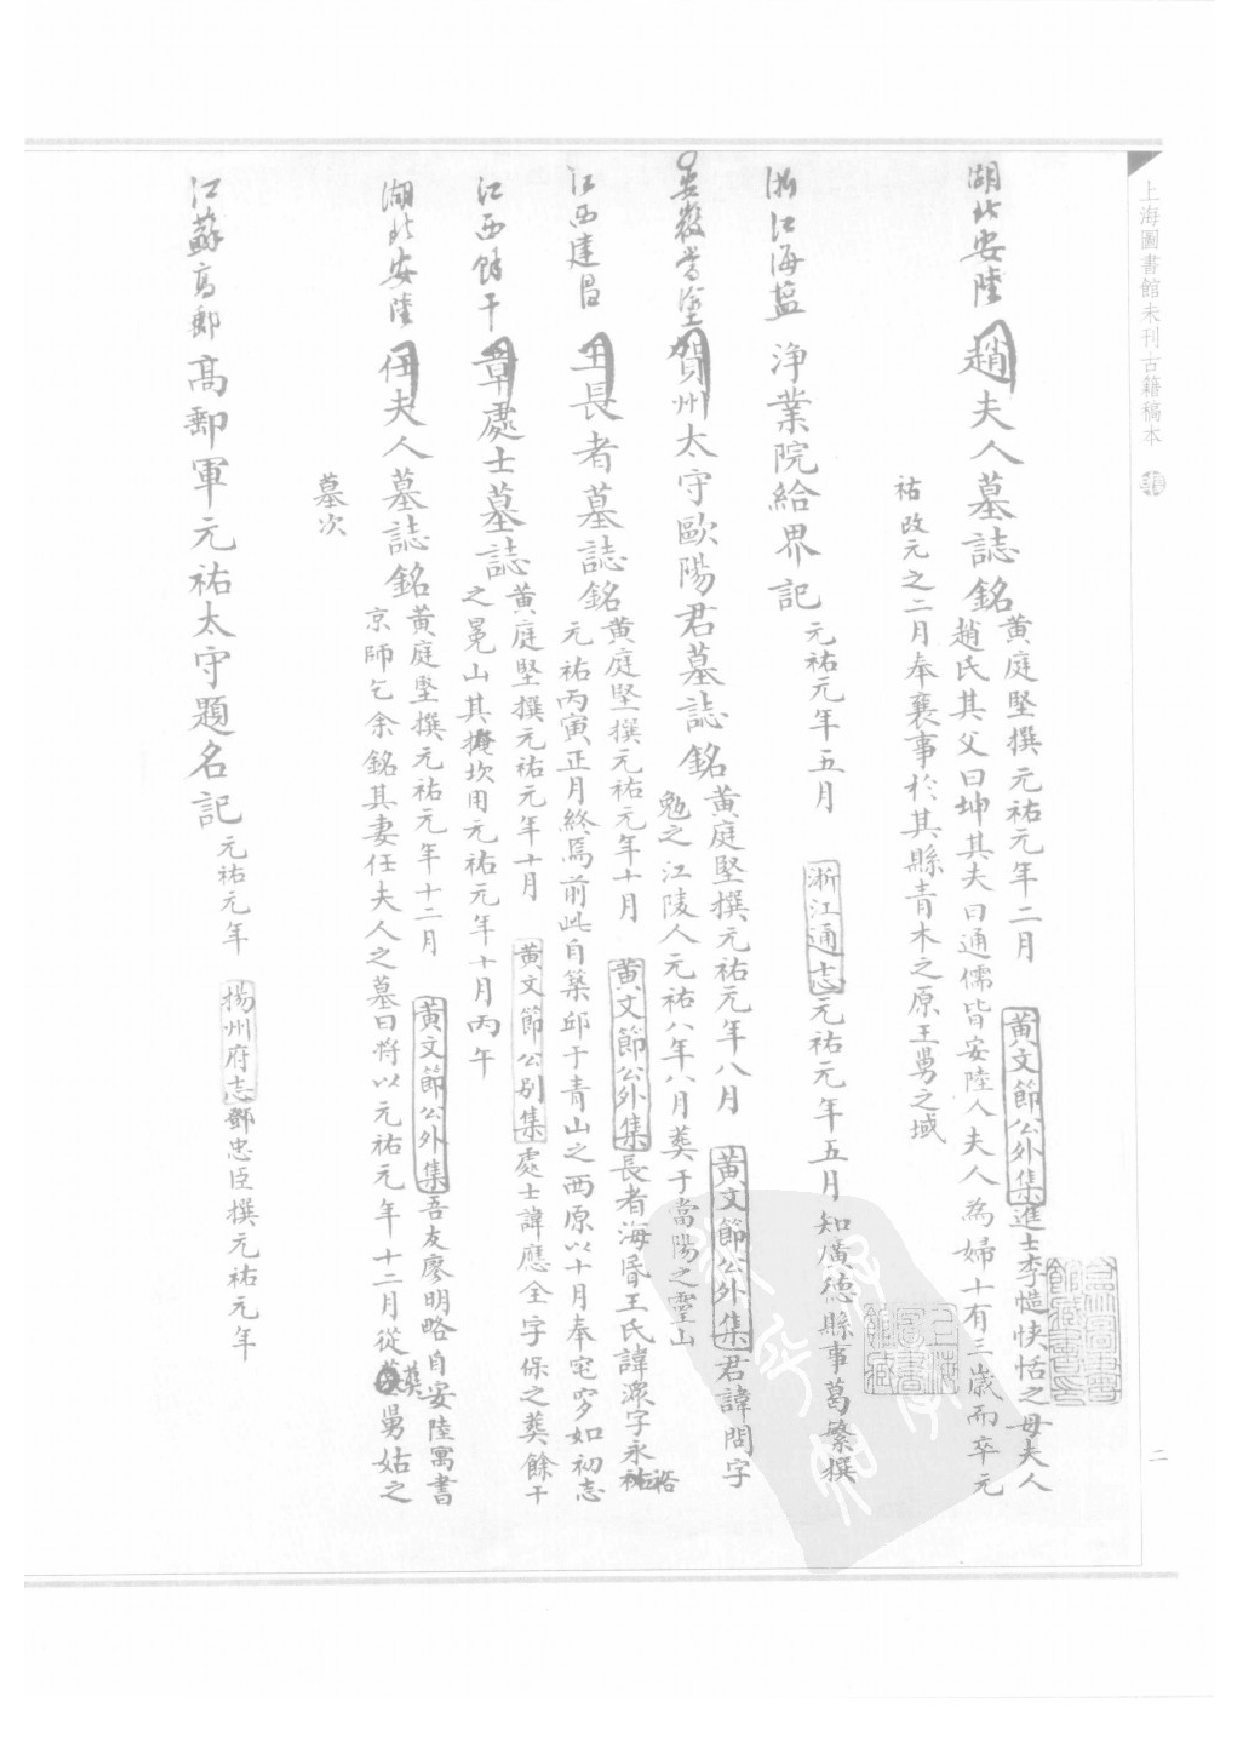 上海圖書館未刊古籍稿本
二
湖北安陸 趙夫人墓誌銘
黃庭堅撰元祐元年二月 黃文節公外集進士李慥快恬之母夫人
趙氏其父曰坤其夫曰通儒皆安陸人夫人為婦十有三歲而卒元
祐改元之二月奉襄事於其縣青木之原王舅之域
浙江海盐 淨業院給界記
元祐元年五月 浙江通志元祐元年五月知廣德縣事葛蘩撰
安徽當塗 賀州太守歐陽君墓誌銘
黃庭堅撰元祐元年八月 黃文節公外集君諱問字
勉之江陵人元祐八年八月葬于當陽之靈山
江西建昌 王長者墓誌銘
黃庭堅撰元祐元年十月 黃文節公外集長者海昏王氏諱潨字永裕
元祐丙寅正月終焉前此自築邱于青山之西原以十月奉窀穸如初志
江西餘干 章處士墓誌
黃庭堅撰元祐元年十月 黃文節公别集處士諱應全字保之葬餘干
之冕山其掩坎用元祐元年十月丙午
湖北安陸 任夫人墓誌銘
黃庭堅撰元祐元年十二月 黃文節公外集吾友廖明略自安陸寓書
京師乞余銘其妻任夫人之墓曰將以元祐元年十二月從葬舅姑之
墓次
江蘇高郵 高郵軍元祐太守題名記
元祐元年 揚州府志鄧忠臣撰元祐元年
上海圖書館藏